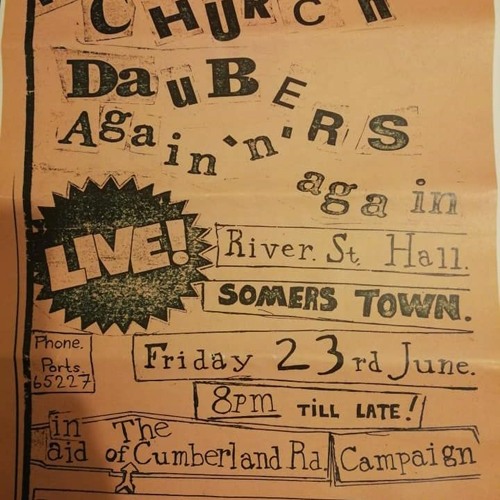 CHURCH
DauBERS
Again 'n'
again
LIVE!
River. St. Hall.
SOMERS TOWN.
Phone.
Ports.
65227
Friday 23rd June.
8PM TILL LATE!
in aid of The Cumberland Rd. Campaign